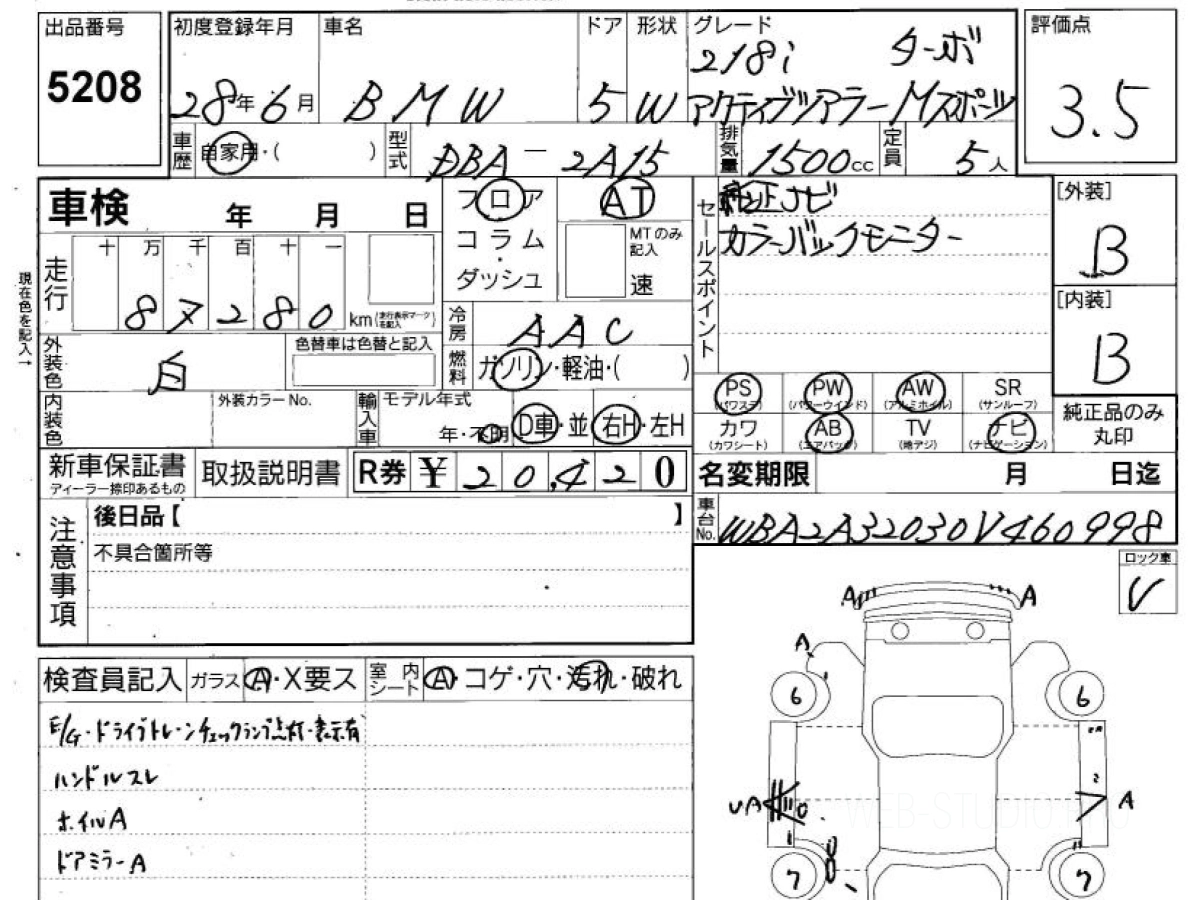 出品番号
5208
初度登録年月
28年6月
車名
BMW
ドア
5
形状
W
グレード
218i ターボ
アクティブツアラーMスポーツ
評価点
3.5
車歴
自家用・( )
型式
DBA-2A15
排気量
1500cc
定員
5人
車検 年 月 日
フロア
コラム
・
ダッシュ
AT
MTのみ
記入
速
セールスポイント
純正ナビ
カラーバックモニター
[外装]
B
[内装]
B
純正品のみ
丸印
現在色を記入→
走行
十 万 千 百 十 一
87280
km(走行表示マークを記入)
冷房
AAC
燃料
ガソリン・軽油・( )
外装色
白
色替車は色替と記入
内装色
外装カラーNo.
輸入車
モデル年式
年・不明
D車・並
右H・左H
PS
(パワステ)
PW
(パワーウインド)
AW
(アルミホイル)
SR
(サンルーフ)
カワ
(カワシート)
AB
(エアバッグ)
TV
(地デジ)
ナビ
(ナビゲーション)
新車保証書
ディーラー捺印あるもの
取扱説明書
R券 ¥20,420
名変期限 月 日迄
車台No.
WBA2A32030V460998
注意事項
後日品【 】
不具合箇所等
ロック車
レ
検査員記入
ガラス
A・X要ス
室内シート
A・コゲ・穴・汚れ・破れ
E/G・ドライブトレーンチェックランプ点灯・表示有
ハンドルスレ
ホイルA
ドアミラーA
A A
A
6 6
UA A
7 7
WEB-STUDIO.PRO